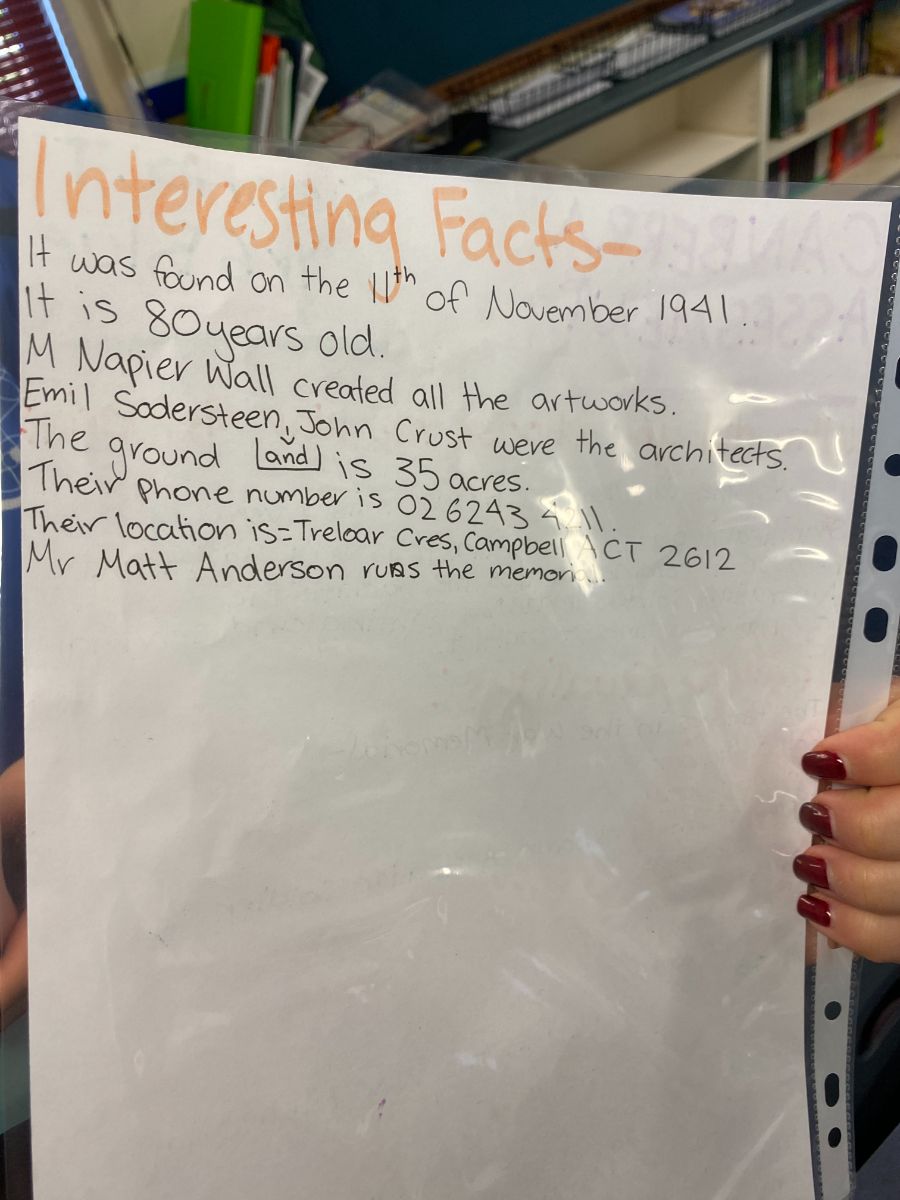 Interesting Facts-
It was found on the 11th of November 1941.
It is 80 years old.
M Napier Wall created all the artworks.
Emil Sodersteen, John Crust were the architects.
The ground land is 35 acres.
Their phone number is 02 6243 4211.
Their location is=Treloar Cres, Campbell ACT 2612
Mr Matt Anderson runs the memorial.